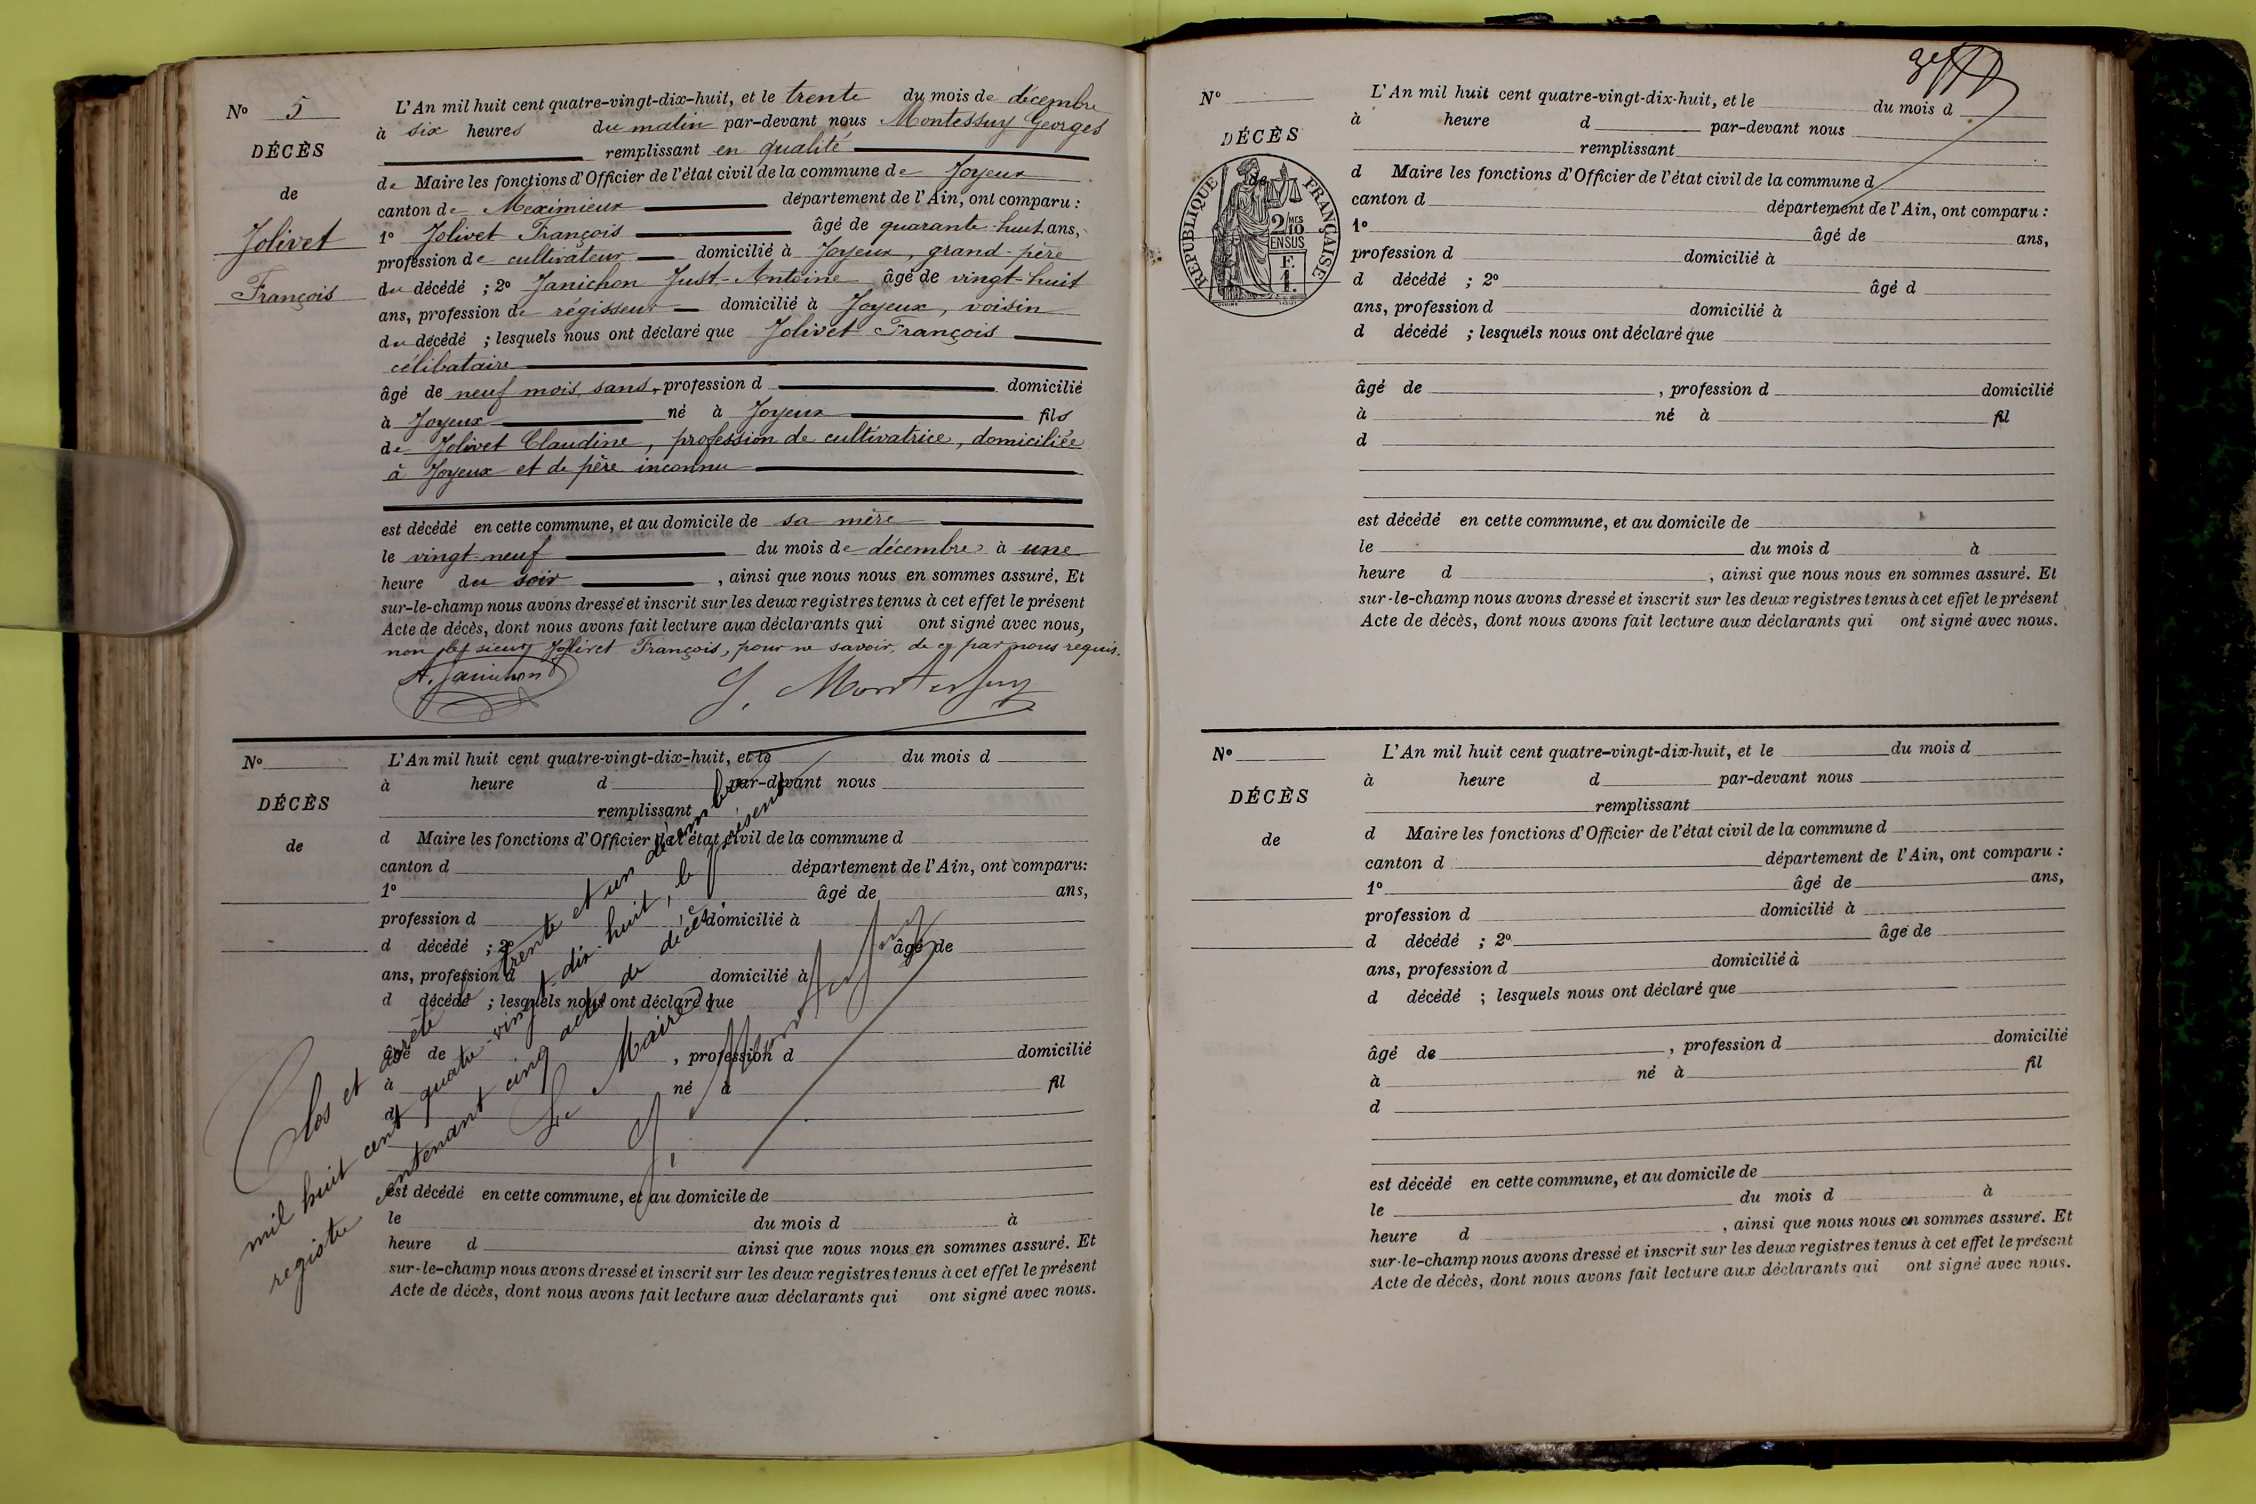 Nº 5
DÉCÈS
de
Jolivet
François
L'An mil huit cent quatre-vingt-dix-huit, et le trente du mois de décembre
à six heures du matin par-devant nous Montessuy Georges
remplissant en qualité
de Maire les fonctions d'Officier de l'état civil de la commune de Joyeux
canton de Meximieux département de l'Ain, ont comparu :
1º Jolivet François âgé de quarante-huit ans,
profession de cultivateur domicilié à Joyeux, grand-père
du décédé ; 2º Janichon Just-Antoine âgé de vingt-huit
ans, profession de régisseur domicilié à Joyeux, voisin
du décédé ; lesquels nous ont déclaré que Jolivet François
célibataire
âgé de neuf mois, sans profession d domicilié
à Joyeux né à Joyeux fils
de Jolivet Claudine, profession de cultivatrice, domiciliée
à Joyeux et de père inconnu
est décédé en cette commune, et au domicile de sa mère
le vingt-neuf du mois de décembre à une
heure du soir , ainsi que nous nous en sommes assuré. Et
sur-le-champ nous avons dressé et inscrit sur les deux registres tenus à cet effet le présent
Acte de décès, dont nous avons fait lecture aux déclarants qui ont signé avec nous,
non le sieur Jolivet François, pour ne savoir, de ce par nous requis.
A. Janichon G. Montessuy
Nº
DÉCÈS
de
L'An mil huit cent quatre-vingt-dix-huit, et le du mois d
à heure d par-devant nous
remplissant
d Maire les fonctions d'Officier de l'état civil de la commune d
canton d département de l'Ain, ont comparu:
1º âgé de ans,
profession d domicilié à
d décédé ; 2º âgé de
ans, profession d domicilié à
d décédé ; lesquels nous ont déclaré que
âgé de , profession d domicilié
à né à fil
d
est décédé en cette commune, et au domicile de
le du mois d à
heure d ainsi que nous nous en sommes assuré. Et
sur-le-champ nous avons dressé et inscrit sur les deux registres tenus à cet effet le présent
Acte de décès, dont nous avons fait lecture aux déclarants qui ont signé avec nous.
Clos et arrêté le trente et un décembre
mil huit cent quatre-vingt-dix-huit, le présent
registre contenant cinq actes de décès.
Le Maire
G. Montessuy
Nº
DÉCÈS
de
RÉPUBLIQUE FRANÇAISE
2/10 MES
EN SUS
F.
1.
L'An mil huit cent quatre-vingt-dix-huit, et le du mois d
à heure d par-devant nous
remplissant
d Maire les fonctions d'Officier de l'état civil de la commune d
canton d département de l'Ain, ont comparu :
1º âgé de ans,
profession d domicilié à
d décédé ; 2º âgé d
ans, profession d domicilié à
d décédé ; lesquels nous ont déclaré que
âgé de , profession d domicilié
à né à fil
d
est décédé en cette commune, et au domicile de
le du mois d à
heure d , ainsi que nous nous en sommes assuré. Et
sur-le-champ nous avons dressé et inscrit sur les deux registres tenus à cet effet le présent
Acte de décès, dont nous avons fait lecture aux déclarants qui ont signé avec nous.
Nº
DÉCÈS
de
L'An mil huit cent quatre-vingt-dix-huit, et le du mois d
à heure d par-devant nous
remplissant
d Maire les fonctions d'Officier de l'état civil de la commune d
canton d département de l'Ain, ont comparu :
1º âgé de ans,
profession d domicilié à
d décédé ; 2º âgé de
ans, profession d domicilié à
d décédé ; lesquels nous ont déclaré que
âgé de , profession d domicilié
à né à fil
d
est décédé en cette commune, et au domicile de
le du mois d à
heure d , ainsi que nous nous en sommes assuré. Et
sur-le-champ nous avons dressé et inscrit sur les deux registres tenus à cet effet le présent
Acte de décès, dont nous avons fait lecture aux déclarants qui ont signé avec nous.